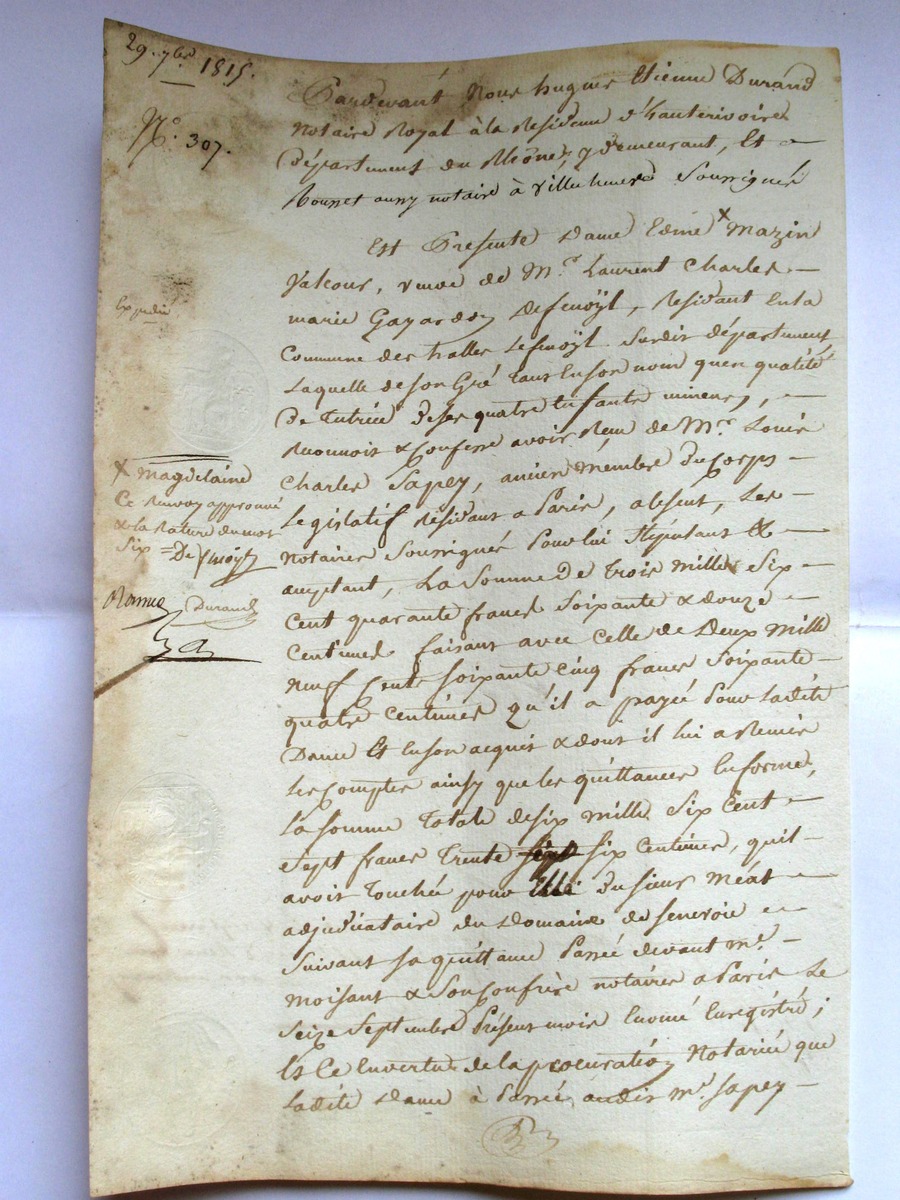 29. 7bre 1815.
N.o 307.
Pardevant Nous hugues Etienne Durand
Notaire Royal à la Residence d'hauterivoire
Département du Rhône, y demeurant, Et
aussy notaire à villechenève Soussignés
Est Présente Dame Edmé x Mazin
Valcour, veuve de M.r Laurent Charles —
marie Gayardon Defenoÿl, Residant en la
Commune des halles Lefenoÿl Surdit département,
Laquelle de son Gré tant En son nom qu'en qualité
De Tutrice de ses quatre Enfants mineurs, —
Reconnoit & Confesse avoir Reçu de M.r Louis
Charles Sapey, ancien membre du Corps —
Legislatif Résidant a Paris, absent, Les —
notaires Soussignés Pour lui Stipulans &
acceptant, La Somme De Trois mille Six —
Cent quarante francs Soixante & douze —
Centimes faisant avec Celle de Deux mille
neuf Cents Soixante Cinq francs Soixante —
quatre Centimes qu'il a payée Pour Ladite
Dame Et En son acquis & dont il lui a Remis
Les Comptes ainsy que les quittances En forme,
La somme Totale de Six mille Six Cent —
Sept francs Trente six Centimes, qu'il —
avoit Touchée pour Elle du sieur Méat —
adjudicataire du Domaine de
Suivant sa quittance Passée devant m.e —
Moisant & Son Confrère notaires a Paris Le
Seize Septembre Présent mois Enregistré ;
Et Ce En vertu de la procuration Notariée que
Ladite Dame à Passée audit M.r Sapey —
Expedié
x magdelaine
Ce Renvoy approuvé
& la Rature du mot
Six = De fenoÿl
Durand